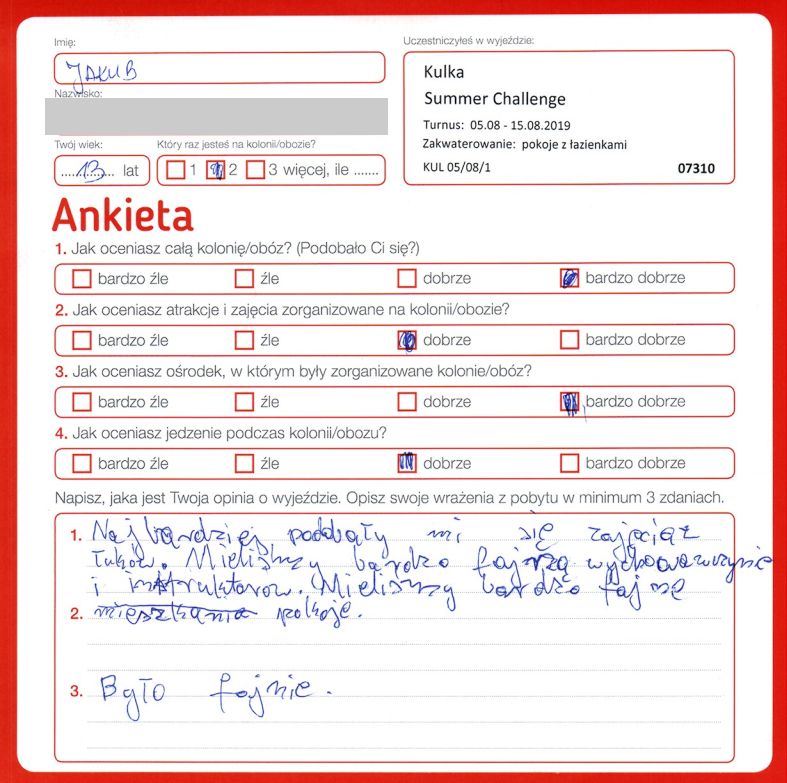 Imię:
JAKUB
Nazwisko:
Uczestniczyłeś w wyjeździe:
Kulka
Summer Challenge
Turnus: 05.08 - 15.08.2019
Zakwaterowanie: pokoje z łazienkami
KUL 05/08/1 07310
Twój wiek:
13 lat
Który raz jesteś na kolonii/obozie?
1 2 3 więcej, ile .......
Ankieta
1. Jak oceniasz całą kolonię/obóz? (Podobało Ci się?)
bardzo źle źle dobrze bardzo dobrze
2. Jak oceniasz atrakcje i zajęcia zorganizowane na kolonii/obozie?
bardzo źle źle dobrze bardzo dobrze
3. Jak oceniasz ośrodek, w którym były zorganizowane kolonie/obóz?
bardzo źle źle dobrze bardzo dobrze
4. Jak oceniasz jedzenie podczas kolonii/obozu?
bardzo źle źle dobrze bardzo dobrze
Napisz, jaka jest Twoja opinia o wyjeździe. Opisz swoje wrażenia z pobytu w minimum 3 zdaniach.
1. Najbardziej podobały mi się zajęcia z
łuków. Mieliśmy bardzo fajną wychowawczynie
i instruktorów. Mieliśmy bardzo fajne
2. mieszkania pokoje.
3. Było fajnie.